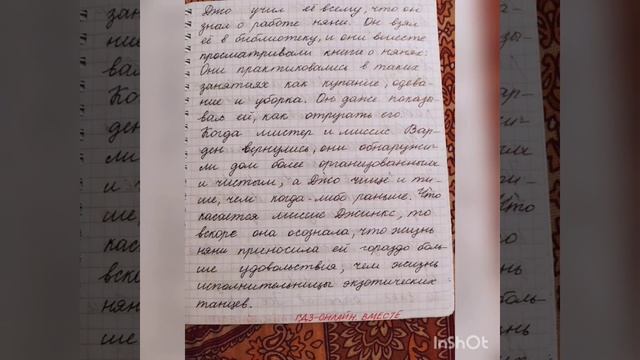 Джо учил её всему, что он
знал о работе няни. Он взял
её в библиотеку, и они вместе
просматривали книги о нянях.
Они практиковались в таких
занятиях как купание, одева-
ние и уборка. Он даже показы-
вал ей, как отругать его.
Когда мистер и миссис Вар-
ден вернулись, они обнаружи-
ли дом более организованным
и чистым, а Джо чище и ти-
ше, чем когда-либо раньше. Что
касается миссис Джинкс, то
вскоре она осознала, что жизнь
няни приносила ей гораздо боль-
ше удовольствия, чем жизнь
исполнительницы экзотических
танцев.
ГДЗ-ОНЛАЙН ВМЕСТЕ
InShOt